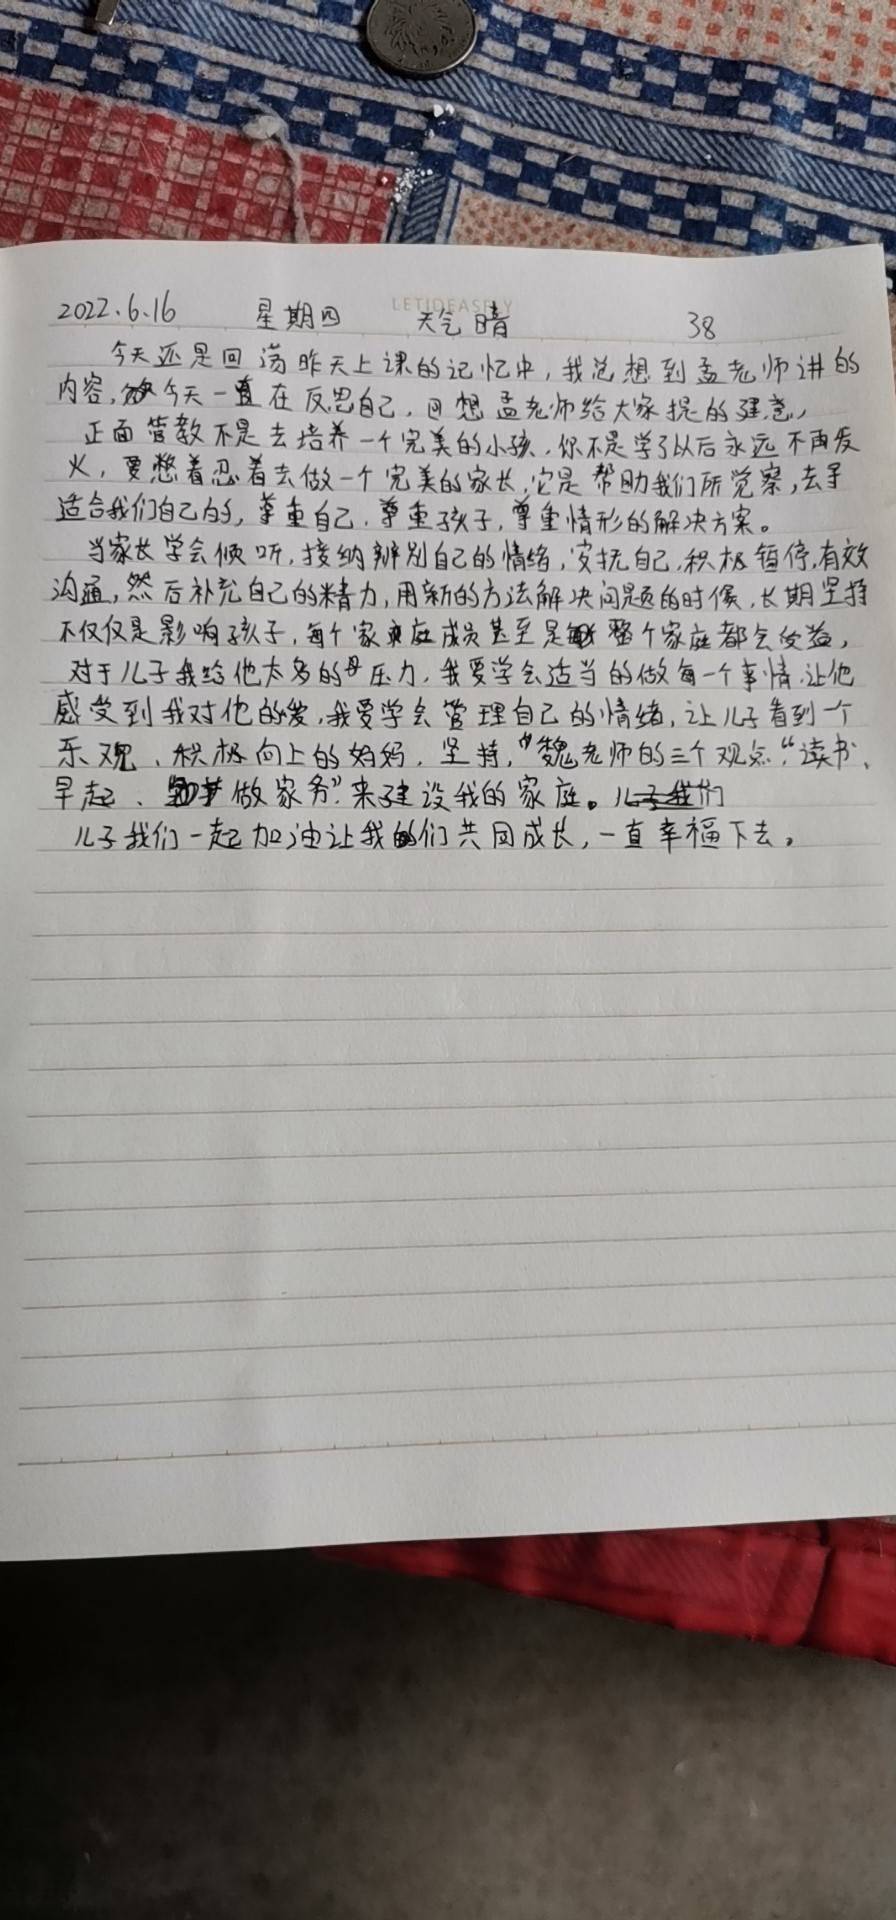 LETIDEAS
2022.6.16 星期四 天气晴 38
今天还是回荡昨天上课的记忆中,我总想到孟老师讲的
内容,今天一直在反思自己,回想孟老师给大家提的建意,
正面管教不是去培养一个完美的小孩,你不是学了以后永远不再发
火,要憋着忍着去做一个完美的家长,它是帮助我们所觉察,去寻
适合我们自己的,尊重自己,尊重孩子,尊重情形的解决方案。
当家长学会倾听,接纳辨别自己的情绪,安抚自己,积极暂停,有效
沟通,然后补充自己的精力,用新的方法解决问题的时候,长期坚持
不仅仅是影响孩子,每个家庭成员甚至是整个家庭都会受益,
对于儿子我给他太多的压力,我要学会适当的做每一个事情,让他
感受到我对他的爱,我要学会管理自己的情绪,让儿子看到一个
乐观、积极向上的妈妈,坚持,“魏老师的三个观点“读书、
早起、做家务”来建设我的家庭。儿子我们
儿子我们一起加油让我们共同成长,一直幸福下去。